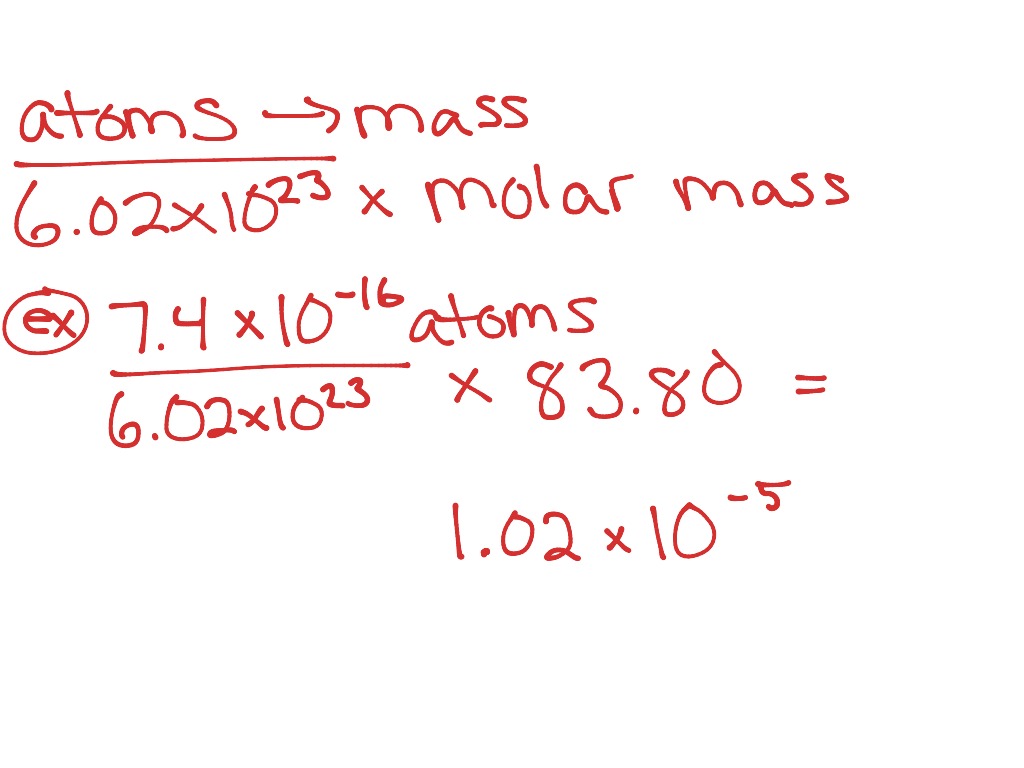 atoms → mass
6.02x10²³ x molar mass
ex 7.4 x 10⁻¹⁶ atoms
6.02x10²³ x 83.80 =
1.02 x 10⁻⁵